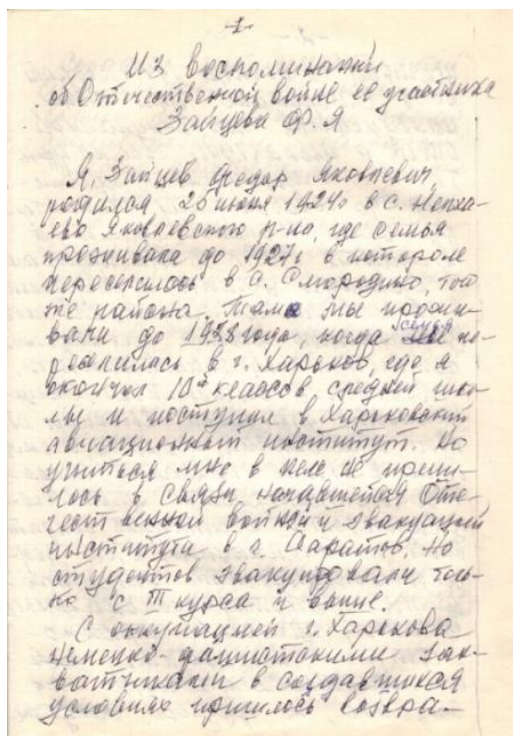 -1-
Из воспоминаний
об Отечественной войне ее участника
Зайцева Ф. Я
Я, Зайцев Федор Яковлевич,
родился 25 июня 1924г в с. Непха-
ево Яковлевского р-на, где семья
проживала до 1927г в котором
переселилась в с. Смородино, того
же района. Там мы прожи-
вали до 1938 года, когда семья пе-
реселилась в г. Харьков, где я
окончил 10ть классов средней шко-
лы и поступил в Харьковский
авиационный институт. Но
учиться мне в нем не приш-
лось в связи начавшейся Оте-
чественной войной и эвакуацией
института в г. Саратов. Но
студентов эвакуировали толь-
ко с III курса и выше.
С оккупацией г. Харькова
немецко-фашистскими зах-
ватчиками в создавшихся
условиях пришлось возвра-